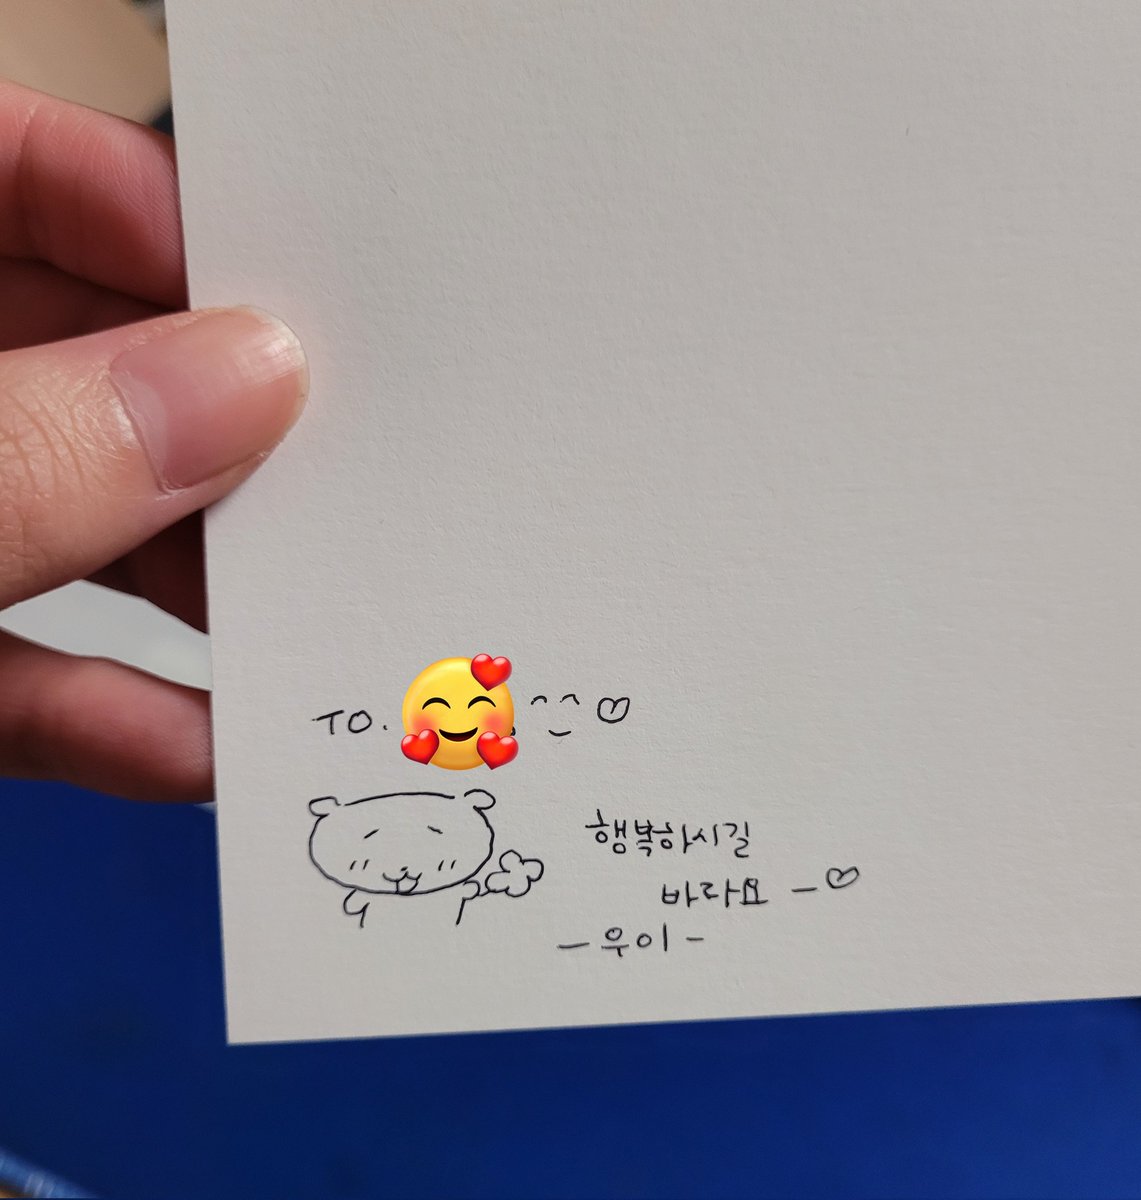 TO.
행복하시길
바라요 ―♡
― 우이 -